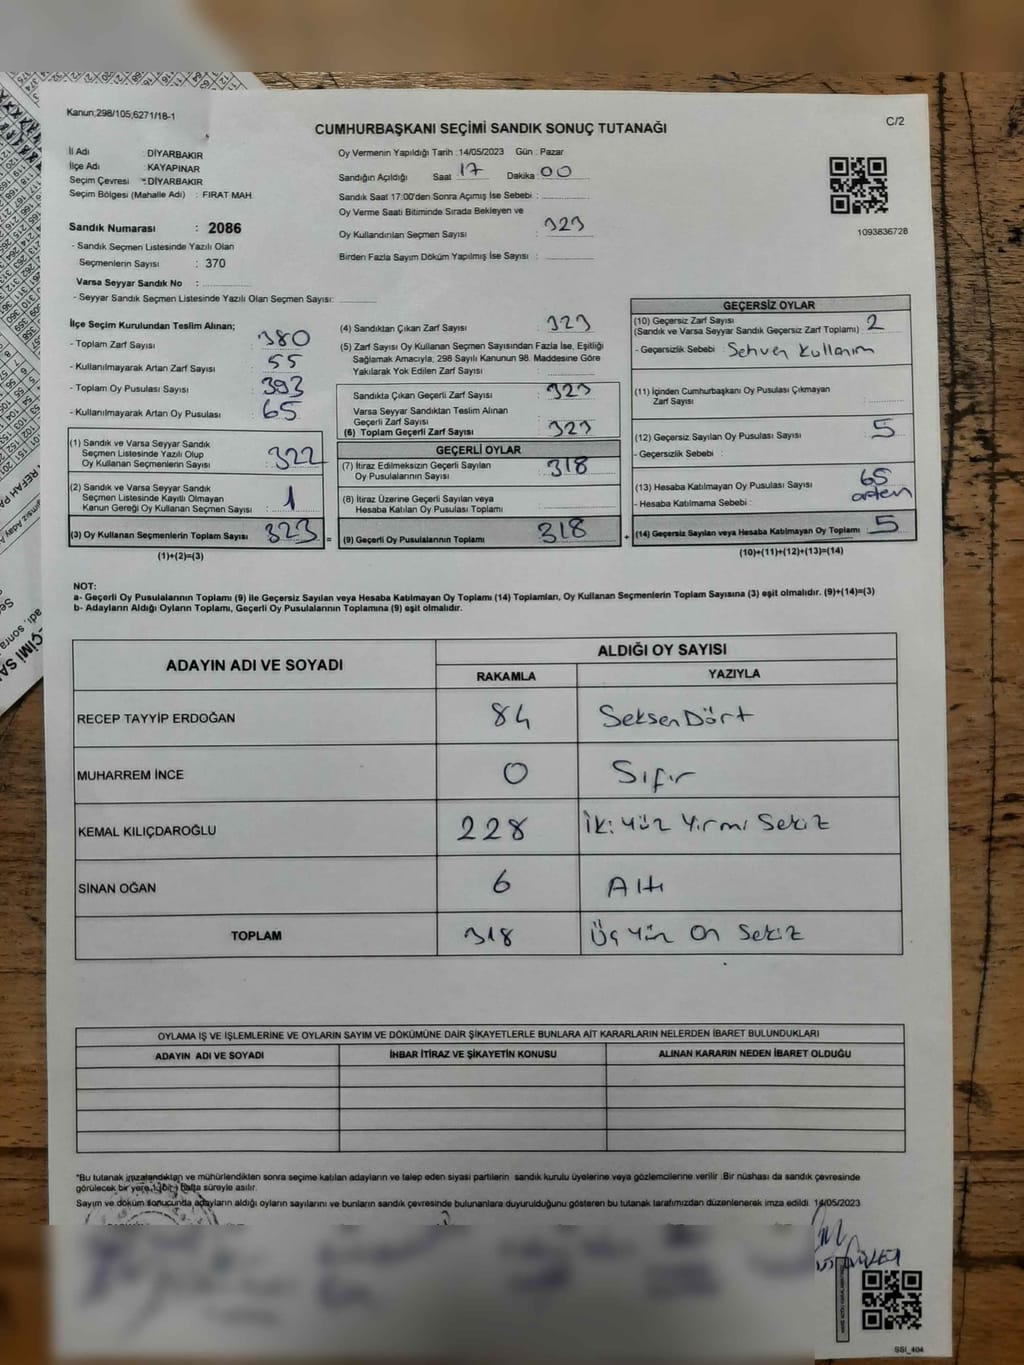 Kanun;298/105,6271/18-1
C/2
CUMHURBAŞKANI SEÇİMİ SANDIK SONUÇ TUTANAĞI
İl Adı : DİYARBAKIR
İlçe Adı : KAYAPINAR
Seçim Çevresi : DİYARBAKIR
Seçim Bölgesi (Mahalle Adı) : FIRAT MAH.
Sandık Numarası : 2086
- Sandık Seçmen Listesinde Yazılı Olan
Seçmenlerin Sayısı : 370
Varsa Seyyar Sandık No :
- Seyyar Sandık Seçmen Listesinde Yazılı Olan Seçmen Sayısı:
Oy Vermenin Yapıldığı Tarih :14/05/2023 Gün : Pazar
Sandığın Açıldığı Saat 17 Dakika 00
Sandık Saat 17:00'den Sonra Açımış İse Sebebi :
Oy Verme Saati Bitiminde Sırada Bekleyen ve
Oy Kullandırılan Seçmen Sayısı : 323
Birden Fazla Sayım Döküm Yapılmış İse Sayısı :
1093836728
İlçe Seçim Kurulundan Teslim Alınan;
- Toplam Zarf Sayısı : 380
- Kullanılmayarak Artan Zarf Sayısı : 55
- Toplam Oy Pusulası Sayısı : 393
- Kullanılmayarak Artan Oy Pusulası : 65
(1) Sandık ve Varsa Seyyar Sandık
Seçmen Listesinde Yazılı Olup
Oy Kullanan Seçmenlerin Sayısı : 322
(2) Sandık ve Varsa Seyyar Sandık
Seçmen Listesinde Kayıtlı Olmayan
Kanun Gereği Oy Kullanan Seçmen Sayısı : 1
(3) Oy Kullanan Seçmenlerin Toplam Sayısı : 323 =
(1)+(2)=(3)
(4) Sandıktan Çıkan Zarf Sayısı : 323
(5) Zarf Sayısı Oy Kullanan Seçmen Sayısından Fazla İse, Eşitliği
Sağlamak Amacıyla, 298 Sayılı Kanunun 98. Maddesine Göre
Yakılarak Yok Edilen Zarf Sayısı :
Sandıkta Çıkan Geçerli Zarf Sayısı : 323
Varsa Seyyar Sandıktan Teslim Alınan
Geçerli Zarf Sayısı :
(6) Toplam Geçerli Zarf Sayısı : 323
GEÇERLİ OYLAR
(7) İtiraz Edilmeksizin Geçerli Sayılan
Oy Pusulalarının Sayısı : 318
(8) İtiraz Üzerine Geçerli Sayılan veya
Hesaba Katılan Oy Pusulası Toplamı :
(9) Geçerli Oy Pusulalarının Toplamı : 318 +
GEÇERSİZ OYLAR
(10) Geçersiz Zarf Sayısı
(Sandık ve Varsa Seyyar Sandık Geçersiz Zarf Toplamı) : 2
- Geçersizlik Sebebi : Sehven Kullanım
(11) İçinden Cumhurbaşkanı Oy Pusulası Çıkmayan
Zarf Sayısı :
(12) Geçersiz Sayılan Oy Pusulası Sayısı : 5
- Geçersizlik Sebebi :
(13) Hesaba Katılmayan Oy Pusulası Sayısı : 65
- Hesaba Katılmama Sebebi : artan
(14) Geçersiz Sayılan veya Hesaba Katılmayan Oy Toplamı : 5
(10)+(11)+(12)+(13)=(14)
NOT:
a- Geçerli Oy Pusulalarının Toplamı (9) ile Geçersiz Sayılan veya Hesaba Katılmayan Oy Toplamı (14) Toplamları, Oy Kullanan Seçmenlerin Toplam Sayısına (3) eşit olmalıdır. (9)+(14)=(3)
b- Adayların Aldığı Oyların Toplamı, Geçerli Oy Pusulalarının Toplamına (9) eşit olmalıdır.
ADAYIN ADI VE SOYADI ALDIĞI OY SAYISI
RAKAMLA YAZIYLA
RECEP TAYYİP ERDOĞAN 84 SeksenDört
MUHARREM İNCE 0 Sıfır
KEMAL KILIÇDAROĞLU 228 İki yüz Yirmi Sekiz
SİNAN OĞAN 6 Altı
TOPLAM 318 Üç Yüz On Sekiz
OYLAMA İŞ VE İŞLEMLERİNE VE OYLARIN SAYIM VE DÖKÜMÜNE DAİR ŞİKAYETLERLE BUNLARA AİT KARARLARIN NELERDEN İBARET BULUNDUKLARI
ADAYIN ADI VE SOYADI İHBAR İTİRAZ VE ŞİKAYETİN KONUSU ALINAN KARARIN NEDEN İBARET OLDUĞU
*Bu tutanak imzalandıktan ve mühürlendikten sonra seçime katılan adayların ve talep eden siyasi partilerin sandık kurulu üyelerine veya gözlemcilerine verilir .Bir nüshası da sandık çevresinde
görülecek bir yere 1(bir) hafta süreyle asılır.
Sayım ve döküm sonucunda adayların aldığı oyların sayılarını ve bunların sandık çevresinde bulunanlara duyurulduğunu gösteren bu tutanak tarafımızdan düzenlenerek imza edildi. 14/05/2023
SSI_404